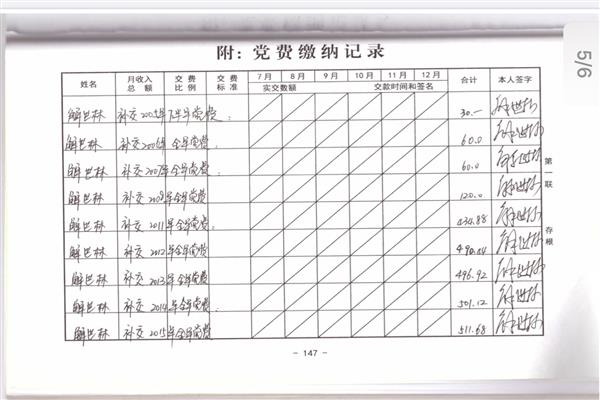 附：党费缴纳记录
姓名 月收入总额 交费比例 交费标准 7月 8月 9月 10月 11月 12月 合计 本人签字
实交数额 交款时间和签名
解世林 补交2005年下半年党费： 30.—
解世林 补交2006年全年党费： 60.0
解世林 补交2007年全年党费： 60.0
解世林 补交 年全年党费 120.0
解世林 补交2011年全年党费： 434.88
解世林 补交2012年全年党费： 490.44
解世林 补交2013年全年党费： 496.92
解世林 补交2014年全年党费： 501.12
解世林 补交2015年全年党费 511.68
第一联 存根
- 147 -
5/6